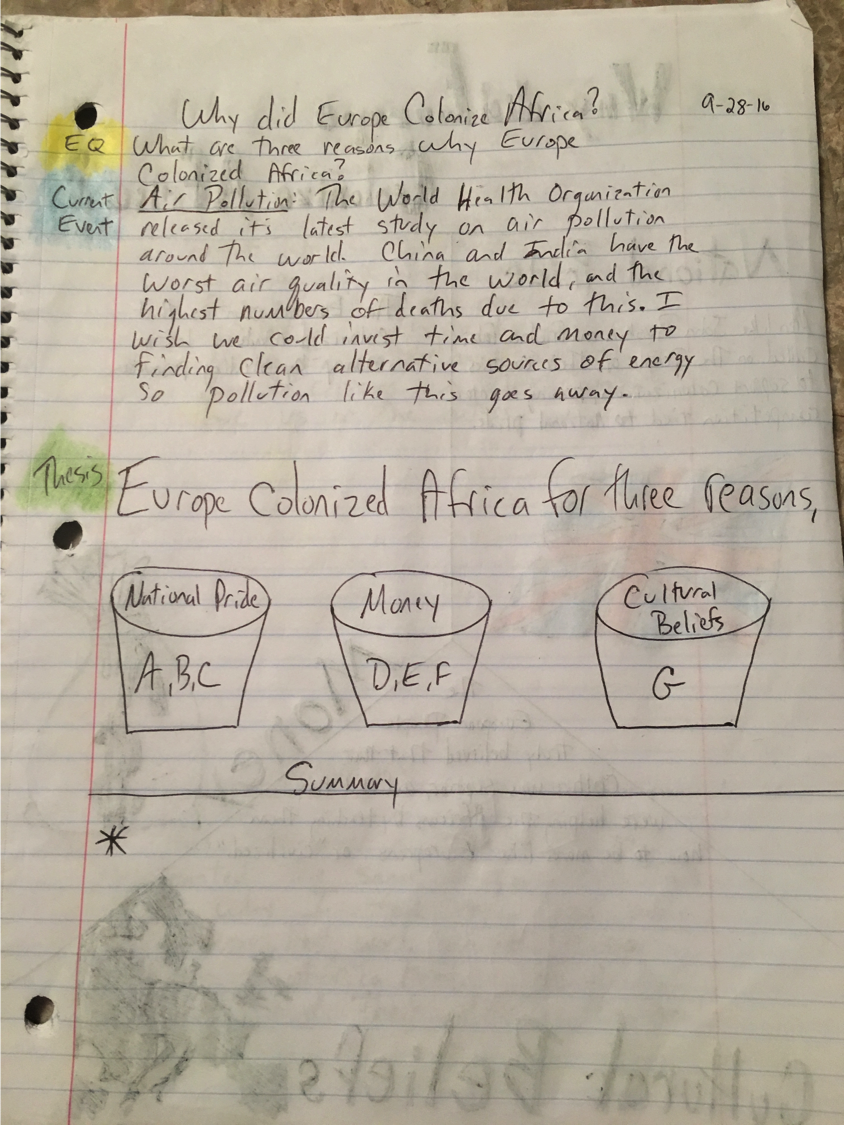 Why did Europe Colonize Africa?
9-28-16
EQ What are three reasons why Europe
Colonized Africa?
Current Air Pollution: The World Health Organization
Event released it's latest study on air pollution
around the world. China and India have the
worst air quality in the world, and the
highest numbers of deaths due to this. I
wish we could invest time and money to
finding clean alternative sources of energy
So pollution like this goes away.
Thesis Europe Colonized Africa for three reasons,
National Pride Money Cultural
Beliefs
A,B,C D,E,F G
Summary
*
Cultural Beliefs